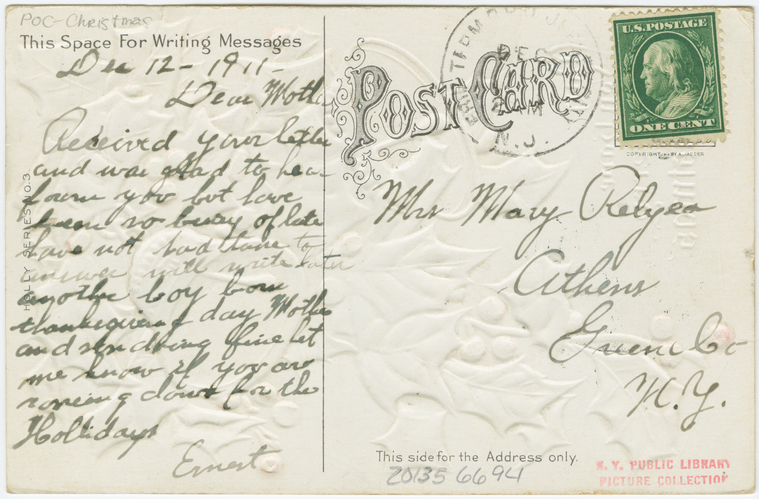 POC-Christmas
This Space For Writing Messages
Dec 12 - 1911 -
Dear Mother
Received your letter
and was glad to hear
from you but have
been so busy of late
have not had time to
answer will write later
another boy born
thanksgiving day Mother
and son doing fine let
me know if you are
comeing down for the
Hollidays
Ernest
HOLLY SERIES NO. 3.
POST CARD
DEC
N.J.
U.S. POSTAGE
ONE CENT
Mrs Mary Relyea
Athens
Green Co
N.Y.
This side for the Address only.
20135 6694
N. Y. PUBLIC LIBRARY
PICTURE COLLECTION